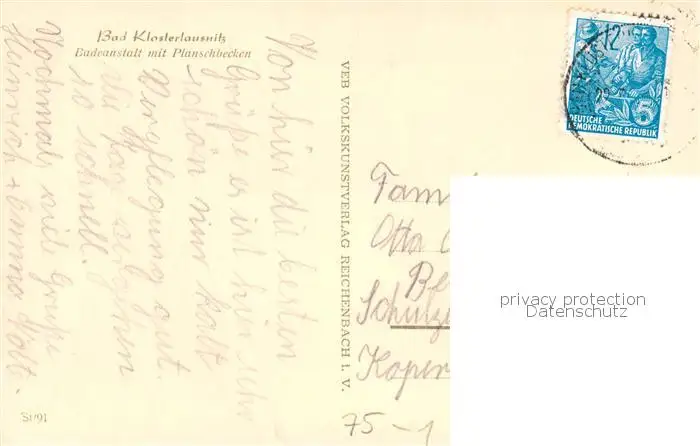 Bad Klosterlausnitz
Badeanstalt mit Planschbecken
Von hier die besten
Grüße es ist hier sehr
schön nur kalt
Verpflegung gut.
die Tage
so schnell.
Nochmals viele Grüße
Heinrich +
VEB VOLKSKUNSTVERLAG REICHENBACH I. V.
5
DEUTSCHE
DEMOKRATISCHE REPUBLIK
Fami
Otto
Be
Schulze
Koper
privacy protection
Datenschutz
75-1